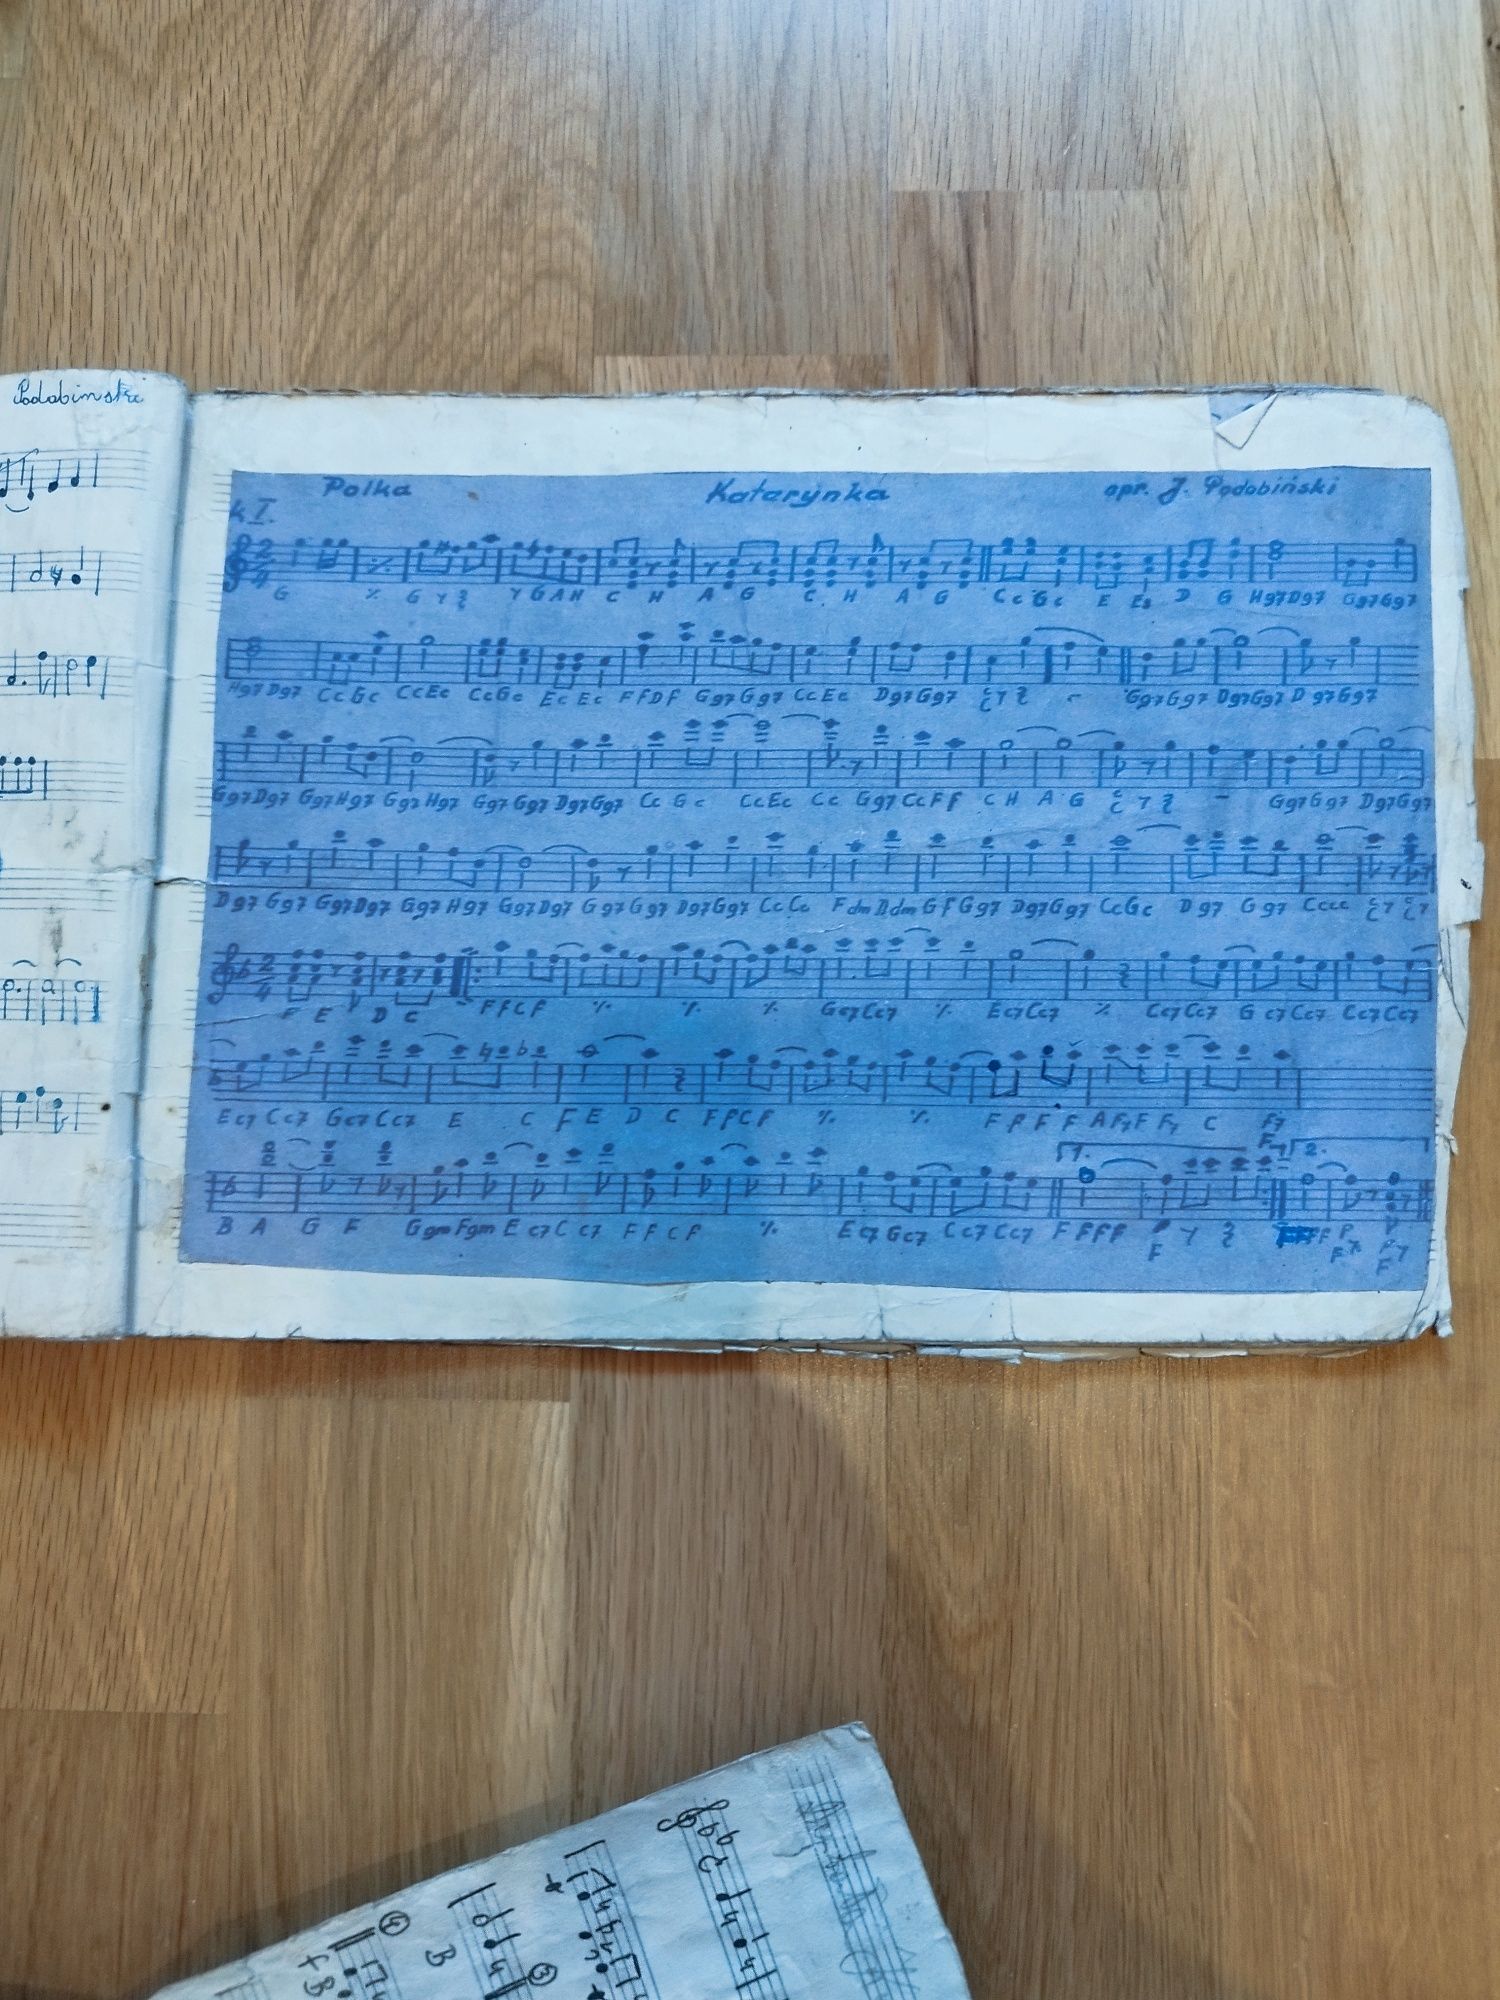 Podobinski
Polka Katarynka opr. J. Podobiński
I.
2 4
G ٪ G G A H C H A G C H A G Cc Gc E Es D G Hg7 Dg7 Gg7 Gg7
Hg7 Dg7 Cc Gc Cc Ec Cc Gc Ec Ec Ff Df Gg7 Gg7 Cc Ec Dg7 Gg7 Gg7 Gg7 Dg7 Gg7 D g7 Gg7
Gg7 Dg7 Gg7 Hg7 Gg7 Hg7 Gg7 Gg7 Dg7 Gg7 Cc Gc Cc Ec Cc Gg7 Cc Ff C H A G Gg7 Gg7 Dg7 Gg7
Dg7 Gg7 Gg7 Dg7 Gg7 Hg7 Gg7 Dg7 Gg7 Gg7 Dg7 Gg7 Cc Cc Fdm Ddm Gf Gg7 Dg7 Gg7 Cc Gc D g7 G g7 Cccc
2 4
F E D C Ff Cf ٪ ٪ ٪ Gc7 Cc7 ٪ Ec7 Cc7 ٪ Cc7 Cc7 G c7 Cc7 Cc7 Cc7
Ec7 Cc7 Gc7 Cc7 E C F E D C Ff Cf ٪ ٪ F f F F A F7 F F7 C F7
1. 2.
B A G F Ggm Fgm E c7 C c7 F F C f ٪ E c7 Gc7 Cc7 Cc7 F fff
B
4
3
F B